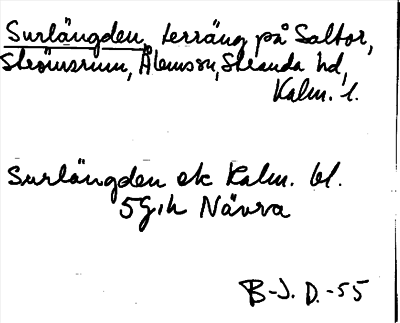 Surlängden, terräng på Saltor,
Strömsrum, Ålemssn, Stranda hd,
Kalm. l.
Surlängden ek Kalm. bl.
5G,h Nävra
B-J. D.-55